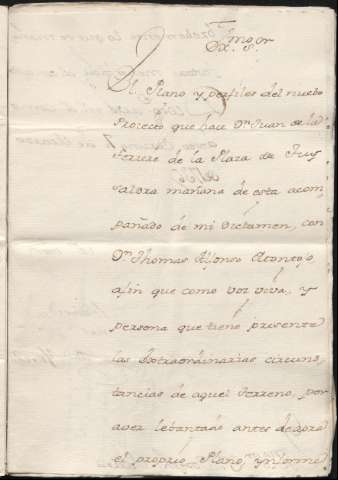 Exmo. Sor.
El Plano y perfiles del nuebo
Proiecto que hace Dn. Juan de la
Ferriere de la Plaza de Tuy
saldra mañana de esta acom,
pañado de mi Dictamen, con
Dn. Thomas Alfonso Atontejo
afin que como voz viva, y
persona que tiene presente
las Extraordinarias circuns,
tancias de aquel Terreno, por
aver lebantado antes de aora
el proprio Plano, ynforme